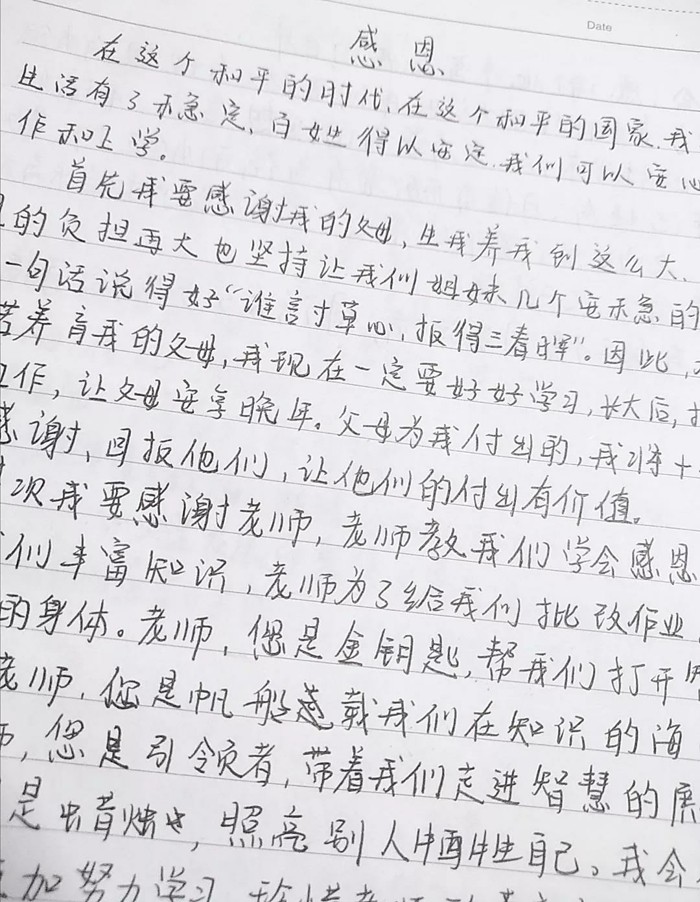 Date
感恩
在这个和平的时代,在这个和平的国家,我
生活有了稳定,百姓得以安定,我们可以安心
作和上学。
首先我要感谢我的父母,生我养我到这么大,
的负担再大也坚持让我们姐妹几个安稳的
一句话说得好“谁言寸草心,报得三春晖”。因此,
苦养育我的父母,我现在一定要好好学习,长大后,
工作,让父母安享晚年。父母为我付出的,我将十
感谢,回报他们,让他们的付出有价值。
次我要感谢老师,老师教我们学会感恩
们丰富知识,老师为了给我们批改作业
的身体。老师,您是金钥匙,帮我们打开
老师,您是帆船,载我们在知识的海
师,您是引领者,带着我们走进智慧的
是蜡烛,照亮别人牺牲自己。我会
加努力学习